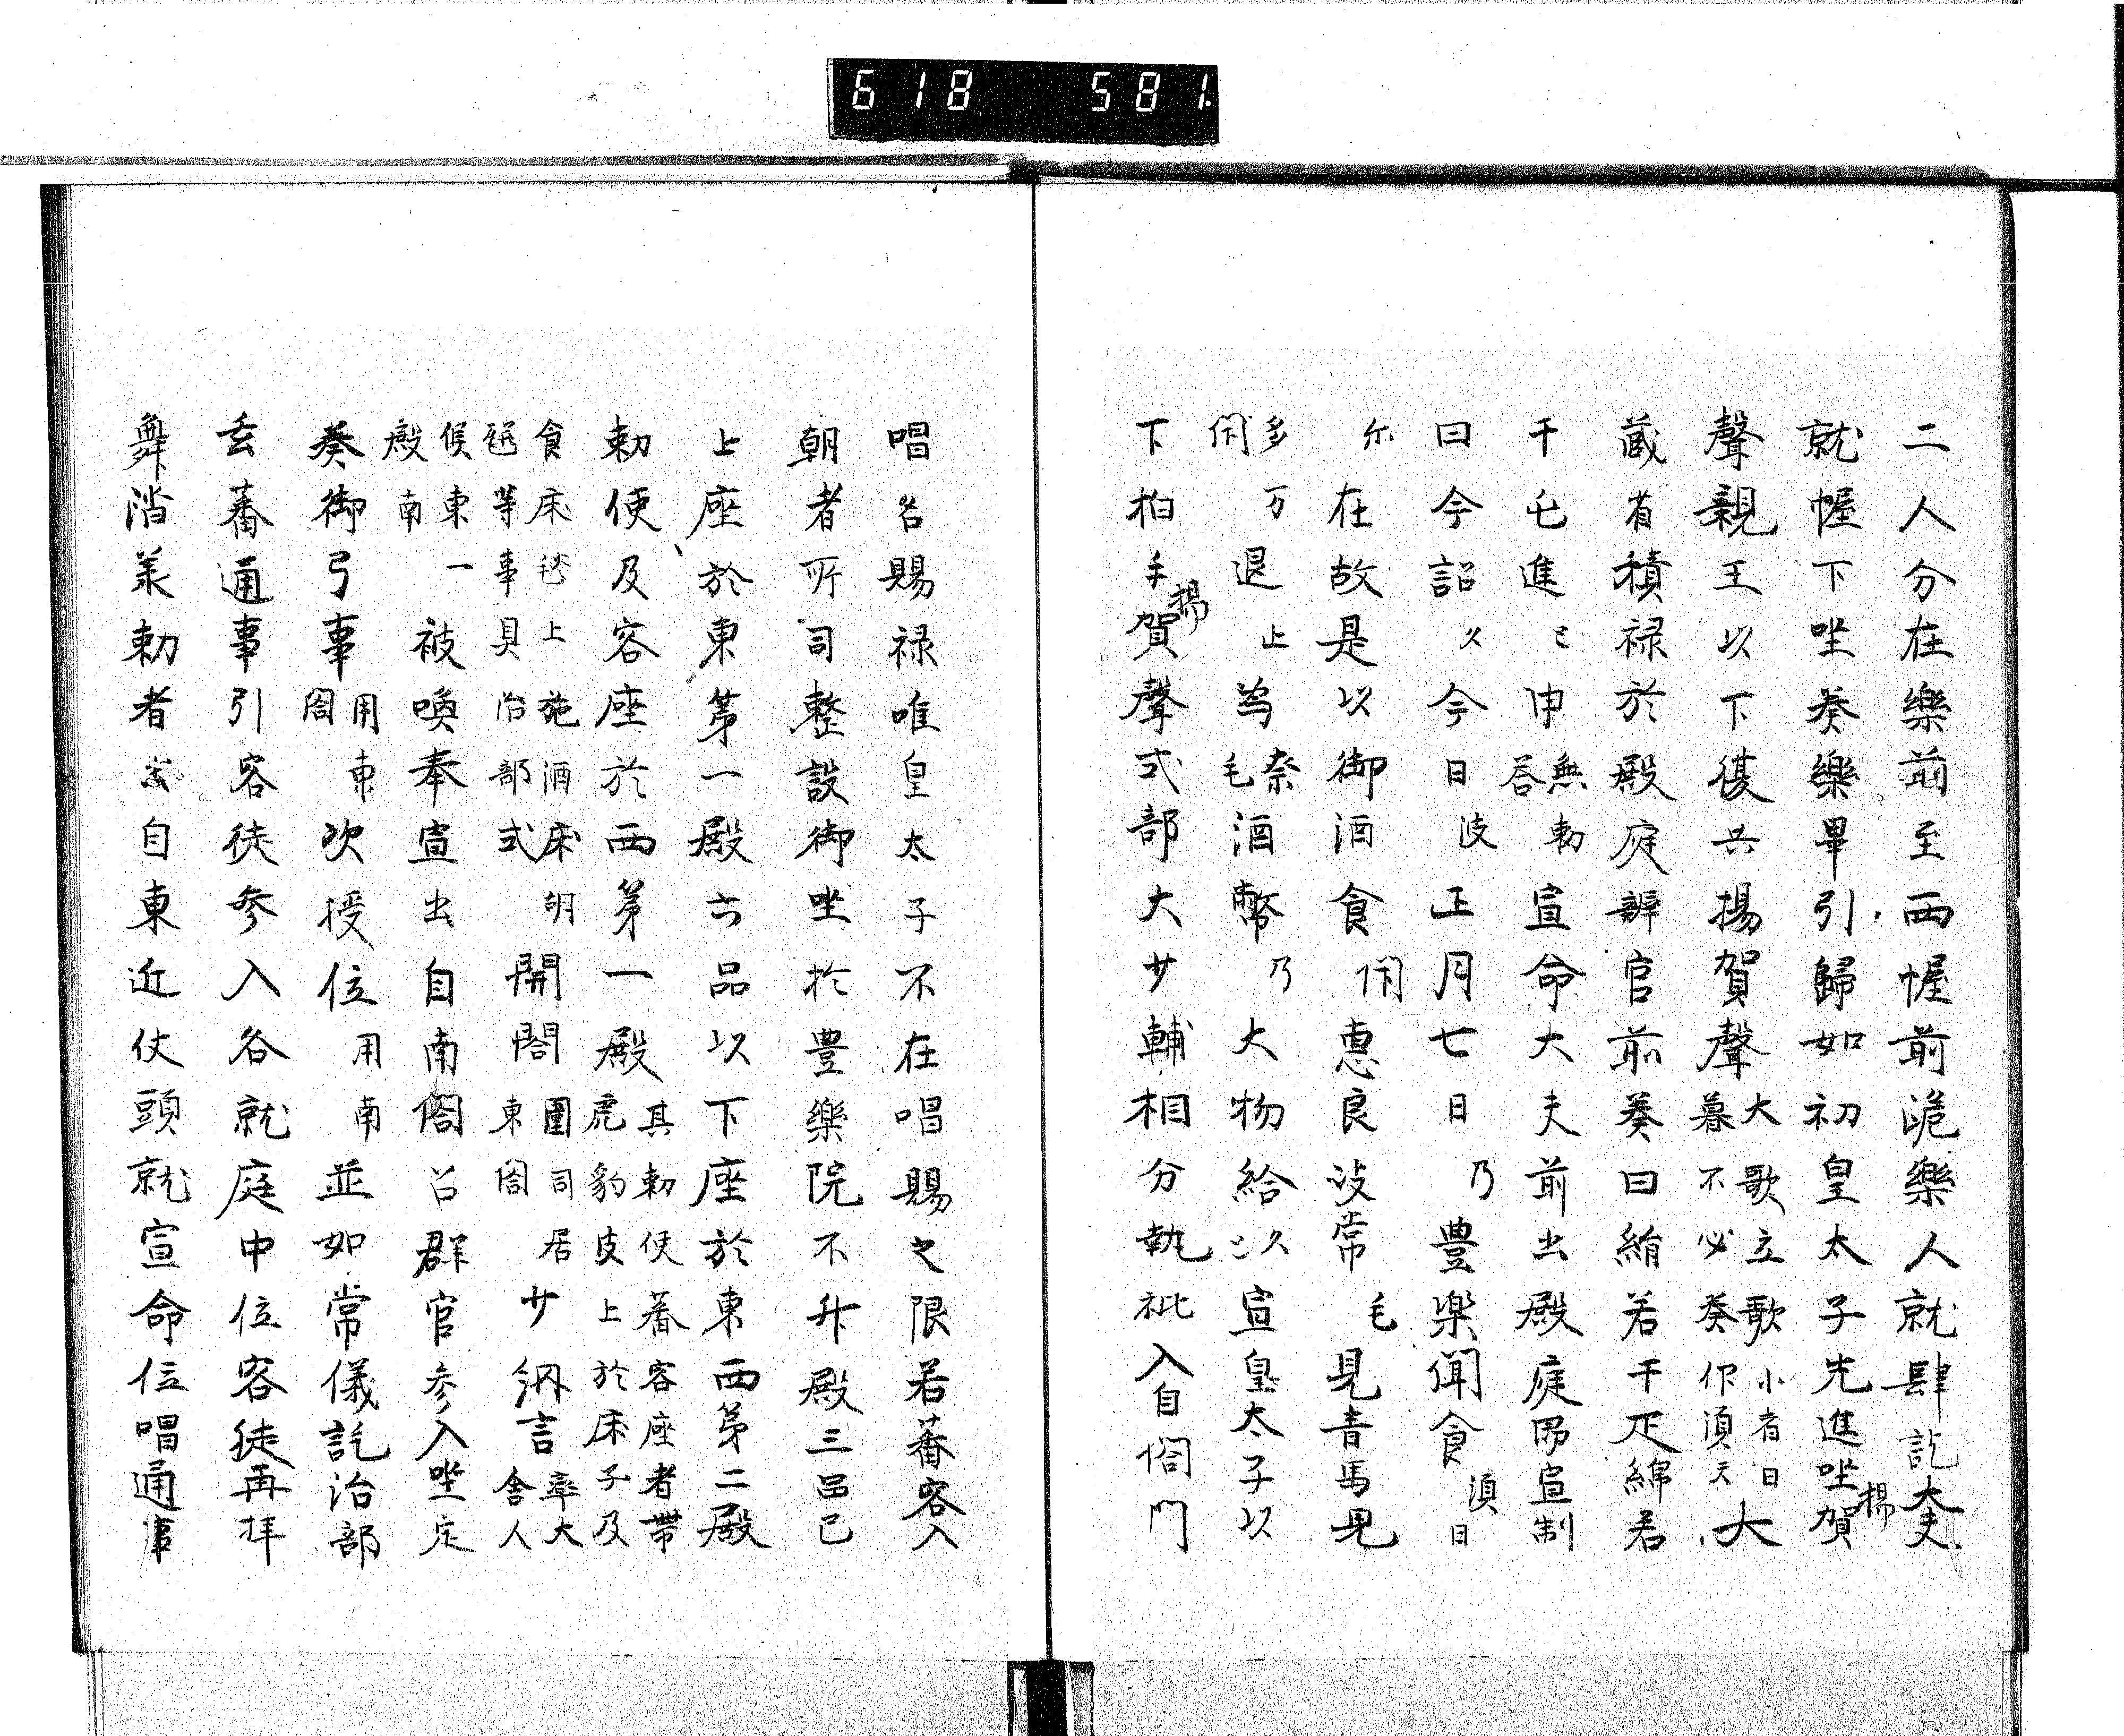 618 581.
二人分在樂前至西幄前跪樂人就肆訖大夫
就幄下坐奏樂畢引歸如初皇太子先進坐揚賀
聲親王以下復共揚賀聲大歌立歌小者日暮不必奏大
蔵省積禄於殿庭辨官前奏曰絹若干疋綿若
干屯進己申無勅荅宣命大夫前出殿庭宣制
曰今詔久今日波正月七日乃豊樂聞食須日
尓在故是以御酒食閇惠良波常毛見青馬見
多万閇退止為奈毛酒幣乃大物給久宣皇太子以
下拍手揚賀聲式部大少輔相分執札入自閤門
唱名賜禄唯皇太子不在唱賜之限若蕃客入
朝者所司整設御坐於豊樂院不升殿三品已
上座於東第一殿六品以下座於東西第二殿
勅使及客座於西第一殿其勅使蕃客座者帶虎豹皮上於床子及
食床上施酒床等事具治部式開閤圍司居東閤少納言率大舍人
候東一殿南被喚奉宣出自南閤召群官參入坐定
奏御弓事用東閤次授位用南並如常儀訖治部
玄蕃通事引客徒参入各就庭中位客徒再拝
舞滔羕勅者自東近仗頭就宣命位唱通事